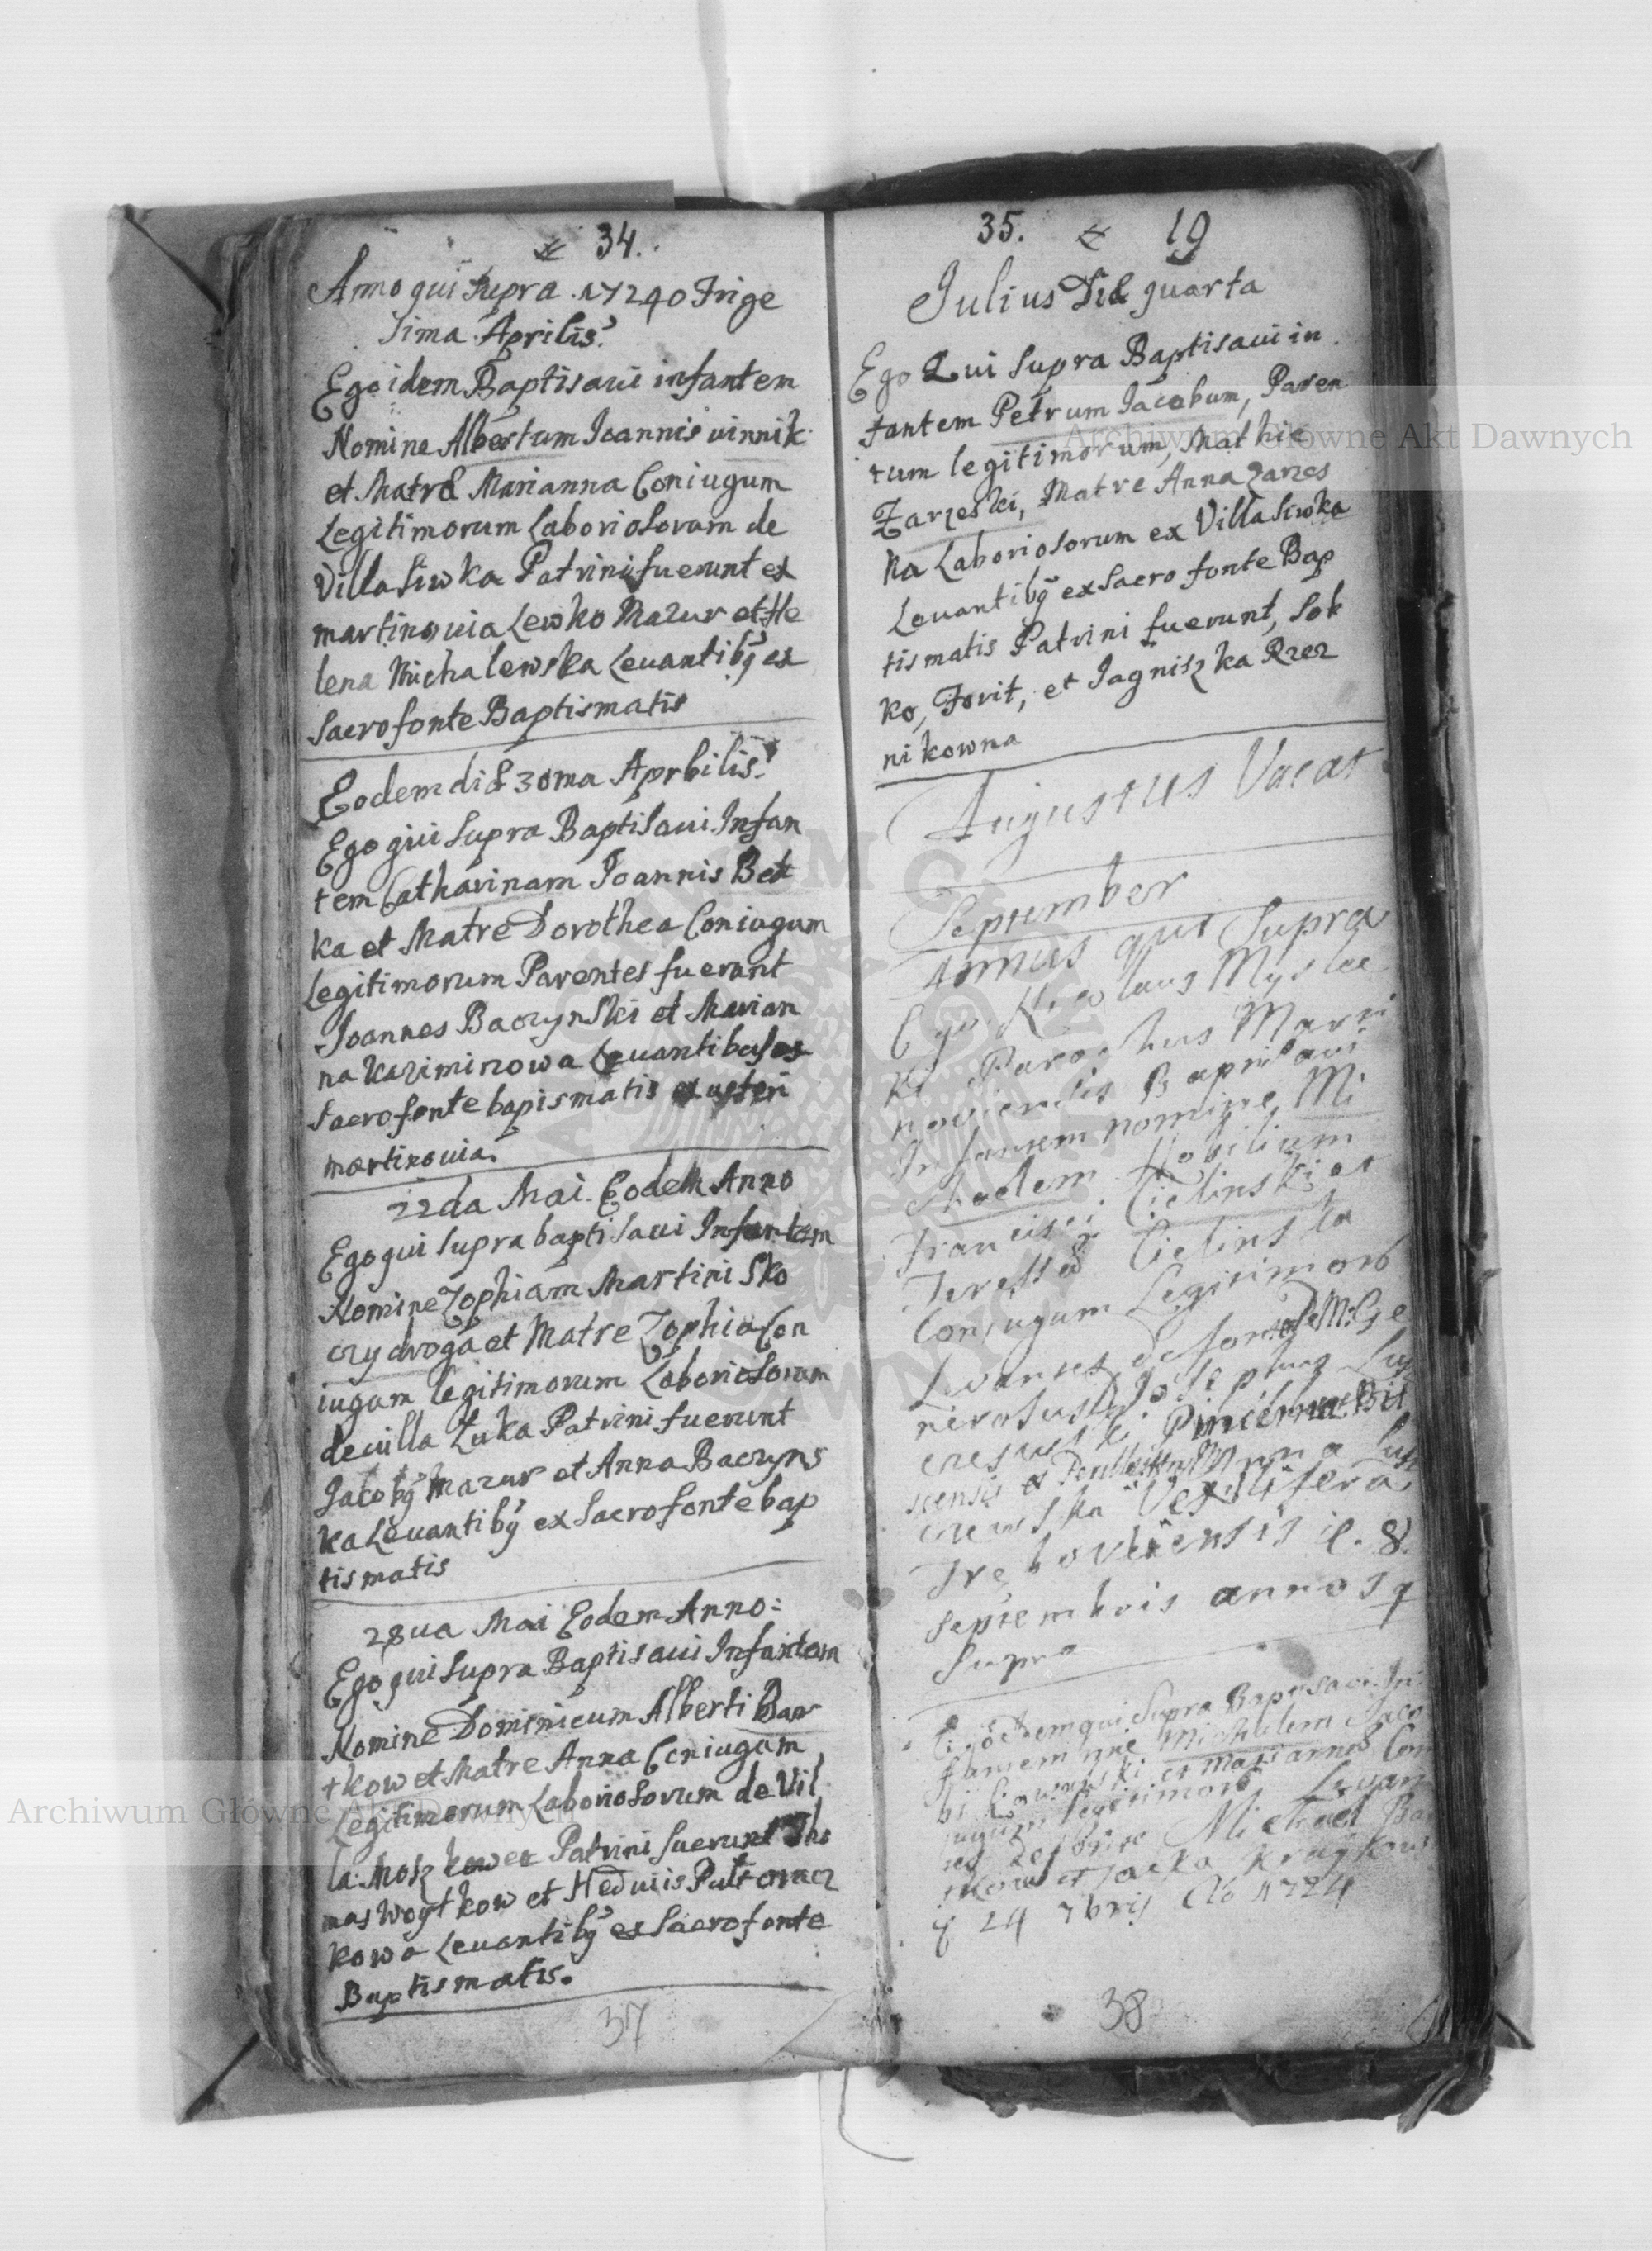 34.
Anno qui Supra 1724o Trige
sima Aprilis.
Ego idem Baptisavi infantem
Nomine Albertum Joannis vinnik
et Matre Marianna Coniugum
Legitimorum Laboriosorum de
Villa Siwka Patrini fuerunt ex
martinovia Lewko Mazur et He
lena Michalewska Levantibq ex
Sacro fonte Baptismatis
Eodem die 30ma Aprbilis.
Ego qui Supra Baptisavi Infan
tem Catharinam Joannis Bet
ka et Matre Dorothea Coniugum
Legitimorum Parentes fuerunt
Joannes Baczynski et Marian
na Kazimirowa Levantibus ex
Sacro fonte bapismatis
martinovia.
22da Mai Eodem Anno
Ego qui Supra baptisavi Infantem
Nomine Zophiam Martini Sko
czydroga et Matre Zophia Con
iugum legitimorum Laboriosorum
de villa Łuka Patrini fuerunt
Jacobq Mazur et Anna Baczyns
ka Levantibq ex Sacro fonte bap
tismatis
28va Mai Eodem Anno:
Ego qui Supra Baptisavi Infantem
Nomine Dominicum Alberti Bar
tkow et Matre Anna Coniugum
Legitimorum Laboriosorum de Vil
la Moszkowce Patrini fuerunt Tho
mas Woytkow et Hedvis
kowa Levantibq ex Sacro fonte
Baptismatis.
37
35. 19
Julius Die quarta
Ego Qui Supra Baptisavi in
fantem Petrum Jacobum, Paren
tum legitimorum, Mathie
Zarzeski, Matre Anna Zarzes
ka Laboriosorum ex Villa Siwka
Levantibq ex Sacro fonte Bap
tismatis Patrini fuerunt, Sok
ko, Forit, et Jagniszka Rzez
nikowna
Augustus Vacat
September
Annus qui Supra
Ego Nicolaus Myslec
ki Parochus Marti
noviensis Baptisavi
Infantem nomine Mi
chaelem Nobilium
Francisci Cielinski et
Teressa Cielinska
Conjugum Legitimorb
Levantes de fonte M. Ge
nerosus D. Josephus
Pincerna
et Anna
Vexillifera
Trebovliensis
Septembris anno
Supra
Ego idem qui Supra Baptisavi In
fantem nne Michalem Jaco
bi et Marianna Con
jugum legitimorb Levan
tes de fonte Michael
et
24 7bris Ao 1724
38
Archiwum Główne Akt Dawnych
Archiwum Główne Akt Dawnych